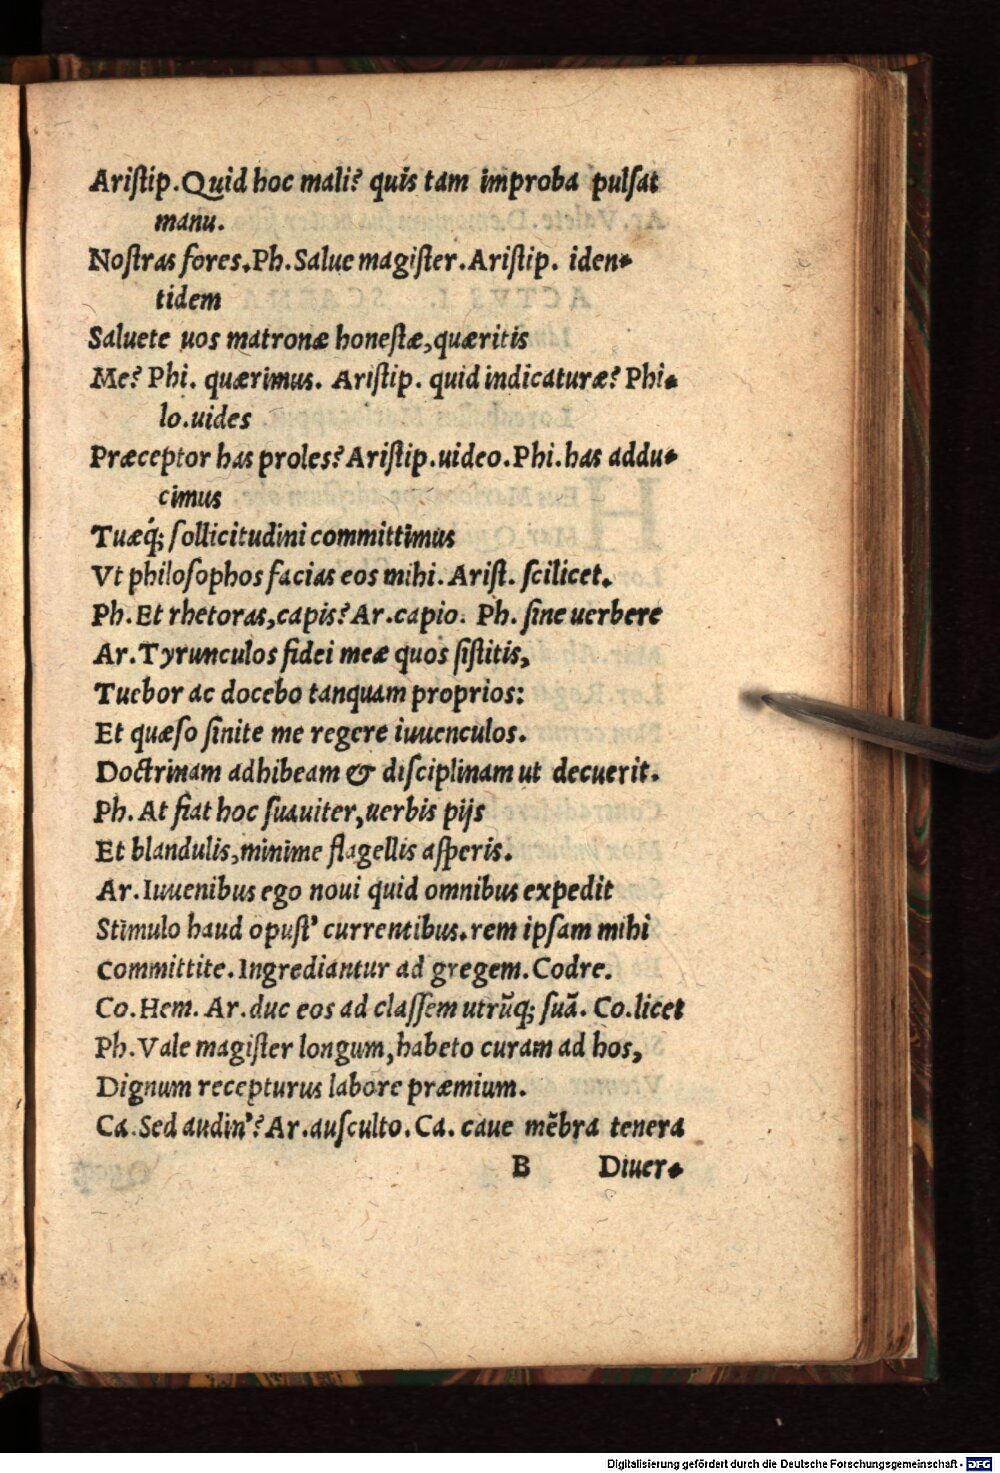 Ariſtip. Quid hoc mali? quis tam improba pulſat
manu.
Noſtras fores. Ph. Salue magiſter. Ariſtip. iden-
tidem
Saluete uos matronæ honeſtæ, quæritis
Me? Phi. quærimus. Ariſtip. quid indicaturæ? Phi-
lo. uides
Præceptor has proles? Ariſtip. uideo. Phi. has addu-
cimus
Tuæq́; ſollicitudini committimus
Vt philoſophos facias eos mihi. Ariſt. ſcilicet.
Ph. Et rhetoras, capis? Ar. capio. Ph. ſine uerbere
Ar. Tyrunculos fidei meæ quos ſiſtitis,
Tuebor ac docebo tanquam proprios:
Et quæſo ſinite me regere iuuenculos.
Doctrinam adhibeam & diſciplinam ut decuerit.
Ph. At fiat hoc ſuauiter, uerbis pijs
Et blandulis, minime flagellis aſperis.
Ar. Iuuenibus ego noui quid omnibus expedit
Stimulo haud opuſt' currentibus. rem ipſam mihi
Committite. Ingrediantur ad gregem. Codre.
Co. Hem. Ar. duc eos ad claſſem utrũq; ſuã. Co. licet
Ph. Vale magiſter longum, habeto curam ad hos,
Dignum recepturus labore præmium.
Ca. Sed audin'? Ar. auſculto. Ca. caue mẽbra tenera
B Diuer-
Digitalisierung gefördert durch die Deutsche Forschungsgemeinschaft - DFG